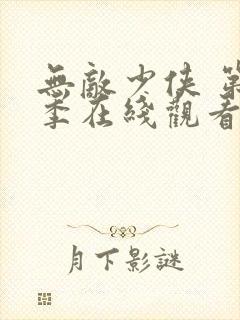 無敵少俠 第
季在綫觀看
月下影謎